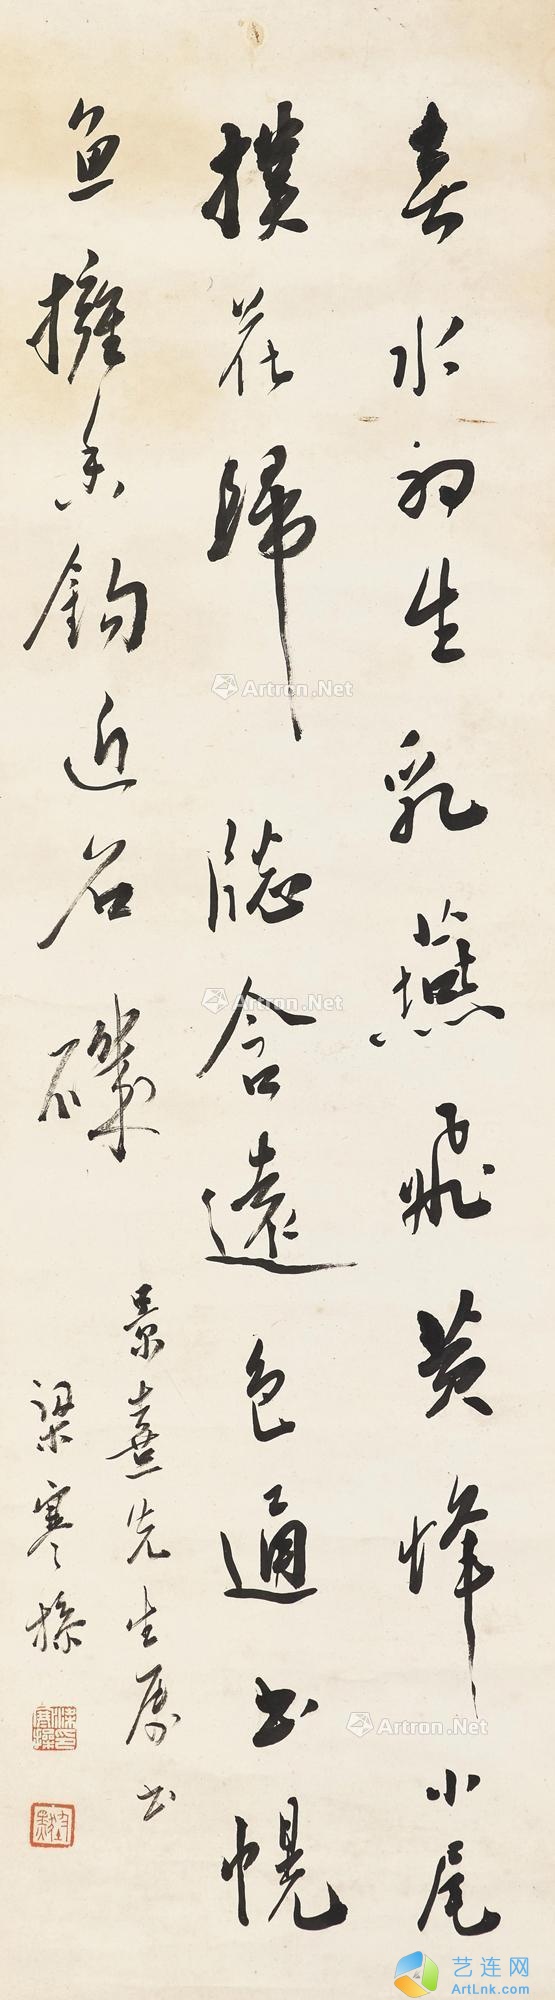 春水初生乳燕飛黃蜂小尾
撲花歸牕含遠色通書幌
魚擁香鉤近石磯
景熹先生属书
梁寒操
Artron.Net
Artron.Net
Artron.Net
艺连网
ArtLnk.com